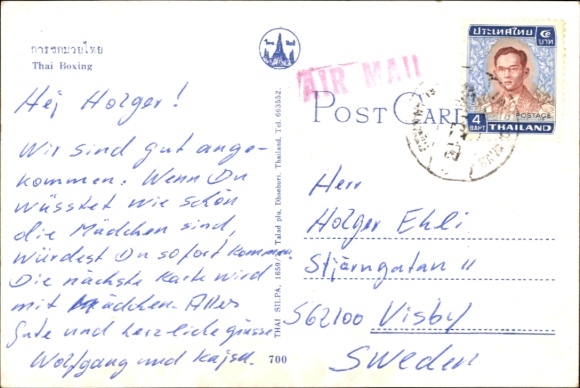 การชกมวยไทย
Thai Boxing
Hej Holger!
Wir sind gut ange-
kommen. Wenn Du
wüsstet wie schön
die Mädchen sind,
würdest Du sofort kommen.
Die nächste Karte wird
mit Mädchen. Alles
Gute und herzliche grüsse
Wolfgang und Kajsa.
THAI SILPA, 1659/ Talad plu, Dhonburi, Thailand, Tel. 663552.
700
AIR MAIL
POST CARD
ประเทศไทย
๔
บาท
4
BAHT
POSTAGE
THAILAND
Herr
Holger Ehli
Stjärngatan 11
S 62100 Visby
Sweden